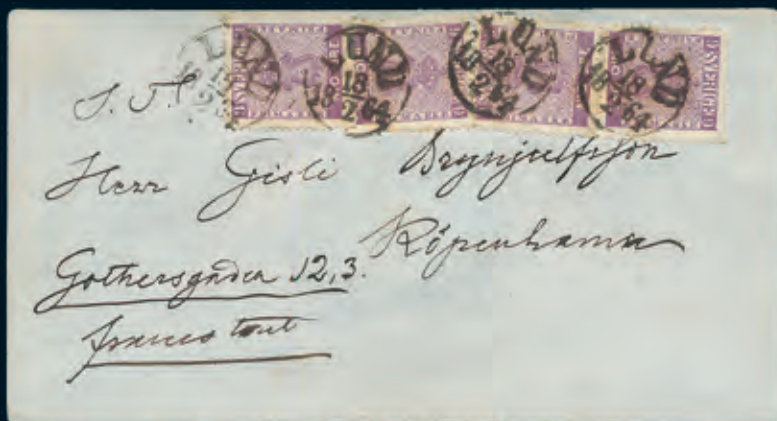 LUND LUND LUND LUND
18 18 18 18
18 2 64 18 2 64 18 2 64
SVERIGE
S. T.
Herr Gisli Brynjulfsson
Köpenhamn
Gothersgaden 12,3.
franco tout